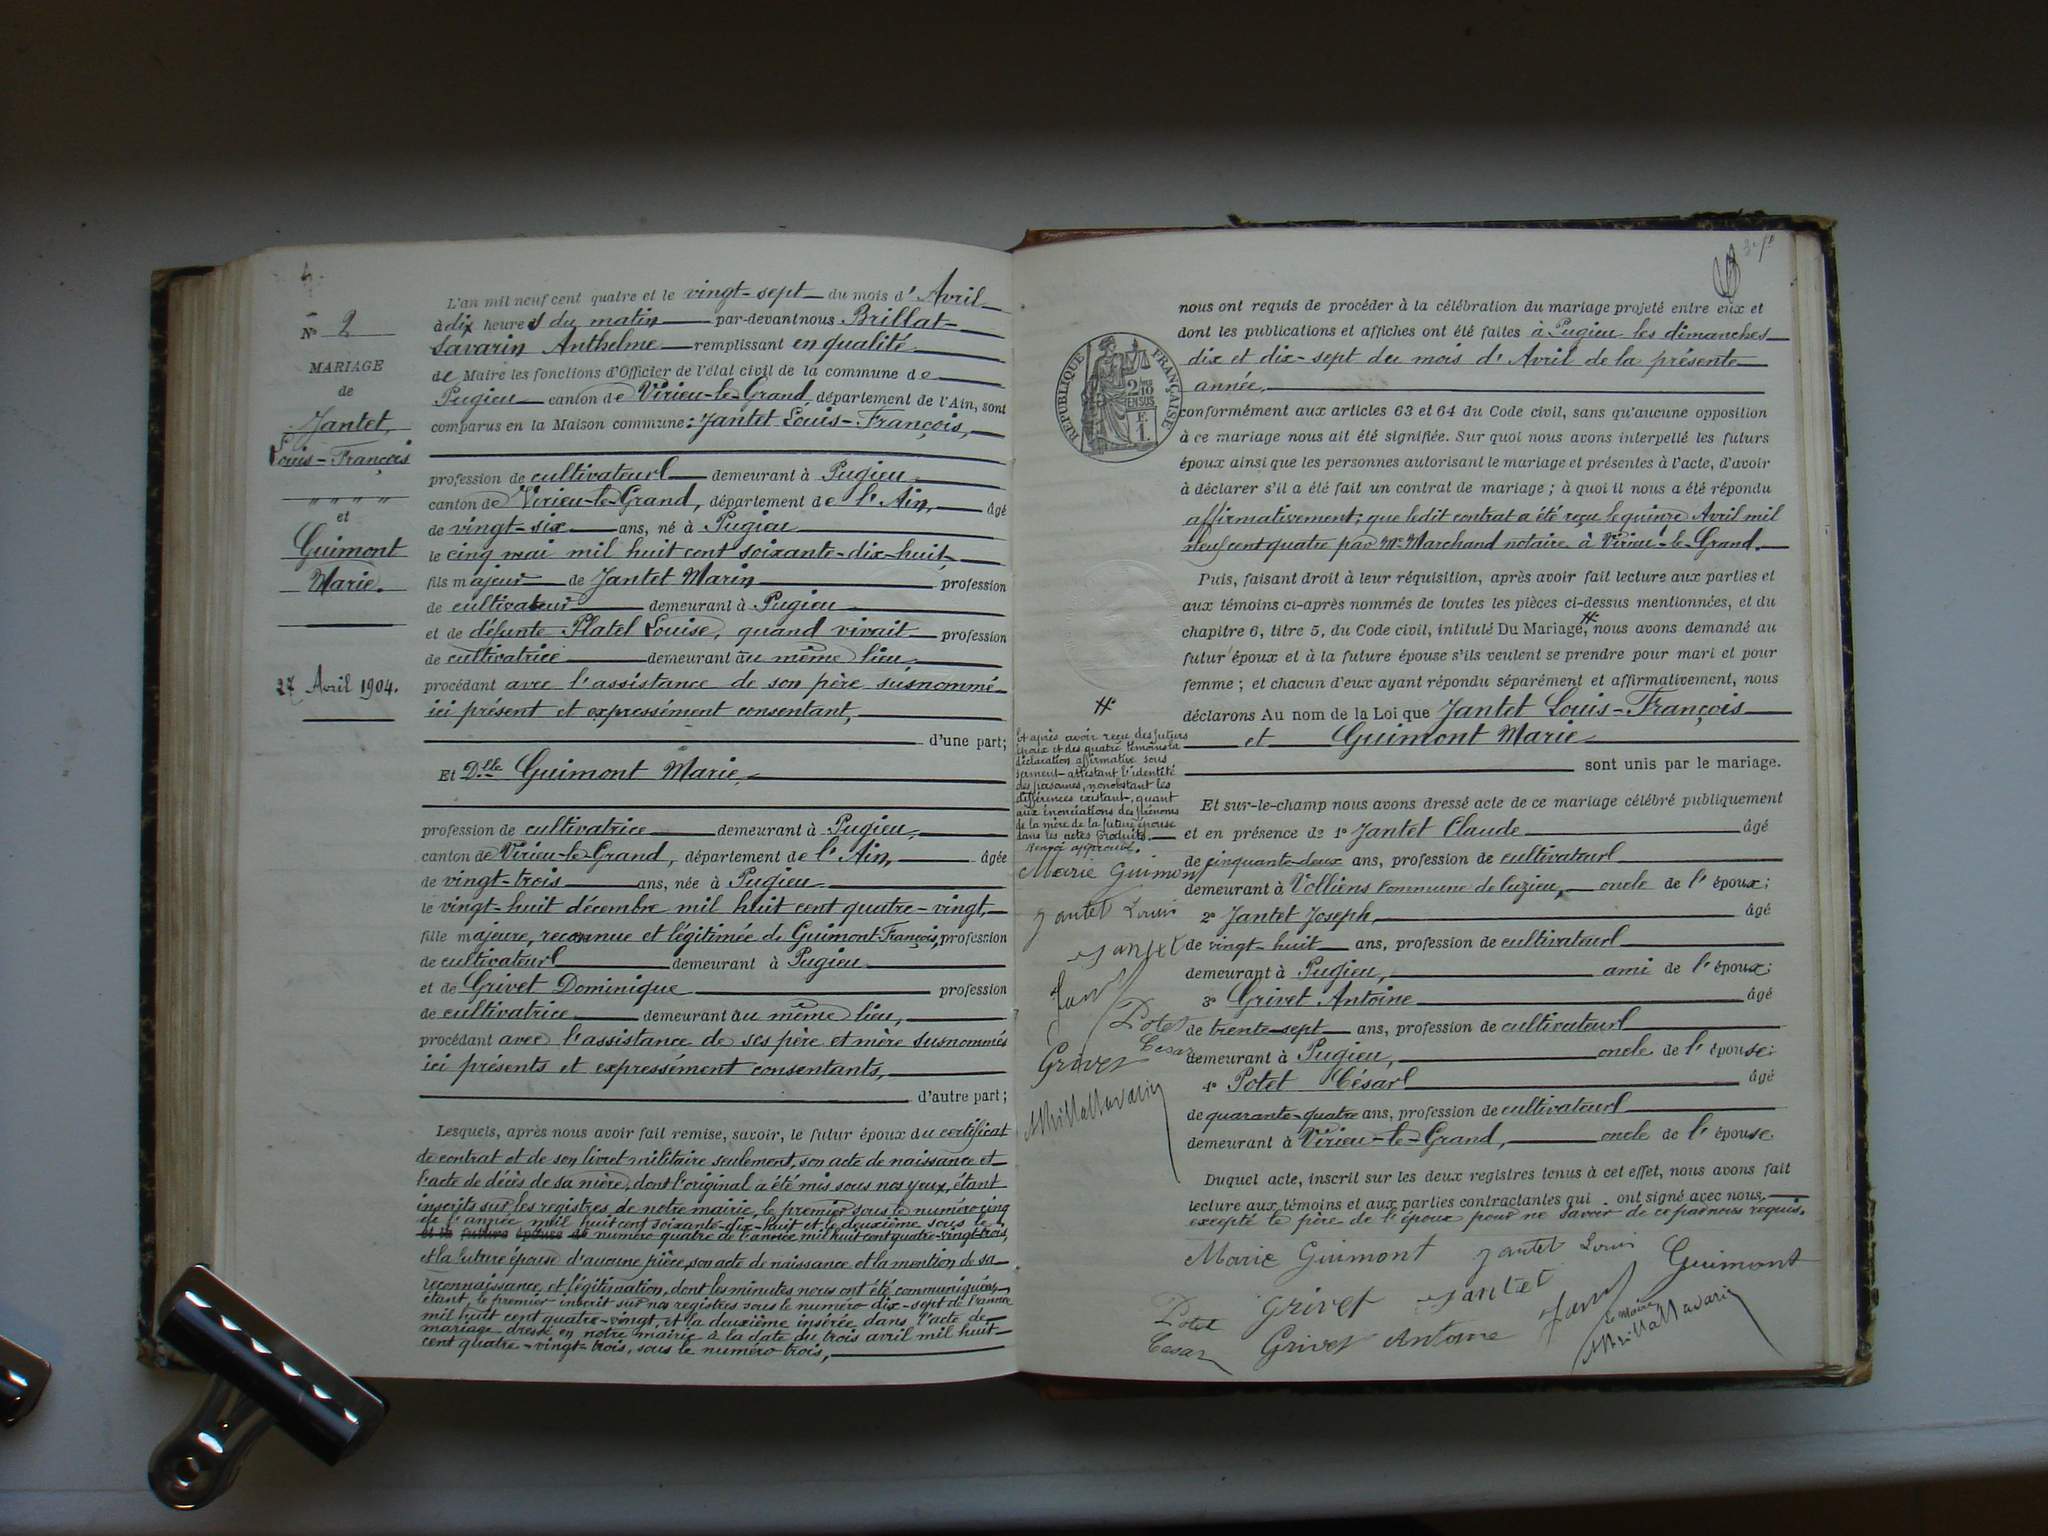 4.
N° 2
MARIAGE
de
Jantet,
Louis-François
" " " "
et
Guimont
Marie.
27 Avril 1904.
L'an mil neuf cent quatre et le vingt-sept du mois d'Avril
à dix heures du matin par-devant nous Brillat-
Savarin Anthelme remplissant en qualité
de Maire les fonctions d'Officier de l'état civil de la commune de
Pugieu canton de Virieu-le-Grand, département de l'Ain, sont
comparus en la Maison commune : Jantet Louis-François,
profession de cultivateur demeurant à Pugieu
canton de Virieu-le-Grand, département de l'Ain, âgé
de vingt-six ans, né à Pugieu
le cinq mai mil huit cent soixante-dix-huit,
fils majeur de Jantet Marin profession
de cultivateur demeurant à Pugieu
et de défunte Platel Louise, quand vivait profession
de cultivatrice demeurant au même lieu,
procédant avec l'assistance de son père susnommé
ici présent et expressément consentant,
d'une part;
Et Dlle Guimont Marie,
profession de cultivatrice demeurant à Pugieu,
canton de Virieu-le-Grand, département de l'Ain, âgée
de vingt-trois ans, née à Pugieu
le vingt-huit décembre mil huit cent quatre-vingt,
fille majeure, reconnue et légitimée de Guimont François, profession
de cultivateur demeurant à Pugieu
et de Grivet Dominique profession
de cultivatrice demeurant au même lieu,
procédant avec l'assistance de ses père et mère susnommés
ici présents et expressément consentants,
d'autre part;
Lesquels, après nous avoir fait remise, savoir, le futur époux du certificat
de contrat et de son livret militaire seulement, son acte de naissance et
l'acte de décès de sa mère, dont l'original a été mis sous nos yeux, étant
inscrits sur les registres de notre mairie, le premier sous le numéro cinq
de l'année mil huit cent soixante-dix-huit et le deuxième sous le
et la future épouse de numéro quatre de l'année mil huit cent quatre-vingt-trois,
et la future épouse d'aucune pièce, son acte de naissance et la mention de sa
reconnaissance et légitimation, dont les minutes nous ont été communiquées,
étant, le premier inscrit sur nos registres sous le numéro dix-sept de l'année
mil huit cent quatre-vingt, et la deuxième insérée dans l'acte de
mariage dressé en notre mairie à la date du trois avril mil huit
cent quatre-vingt-trois, sous le numéro trois,
nous ont requis de procéder à la célébration du mariage projeté entre eux et
dont les publications et affiches ont été faites à Pugieu les dimanches
dix et dix-sept du mois d'Avril de la présente
année,
RÉPUBLIQUE FRANÇAISE
2/10
EN SUS
F.
1.
conformément aux articles 63 et 64 du Code civil, sans qu'aucune opposition
à ce mariage nous ait été signifiée. Sur quoi nous avons interpellé les futurs
époux ainsi que les personnes autorisant le mariage et présentes à l'acte, d'avoir
à déclarer s'il a été fait un contrat de mariage ; à quoi il nous a été répondu
affirmativement; que ledit contrat a été reçu le quinze Avril mil
neuf cent quatre par Me Marchand notaire à Virieu-le-Grand.
Puis, faisant droit à leur réquisition, après avoir fait lecture aux parties et
aux témoins ci-après nommés de toutes les pièces ci-dessus mentionnées, et du
chapitre 6, titre 5, du Code civil, intitulé Du Mariage, # nous avons demandé au
futur époux et à la future épouse s'ils veulent se prendre pour mari et pour
femme ; et chacun d'eux ayant répondu séparément et affirmativement, nous
déclarons Au nom de la Loi que Jantet Louis-François
et Guimont Marie
sont unis par le mariage.
#
Et après avoir reçu des futurs
époux et des quatre témoins la
déclaration affirmative sous
serment attestant l'identité
des personnes, nonobstant les
différences existant, quant
aux énonciations des prénoms
de la mère de la future épouse
dans les actes produits.
Renvoi approuvé.
Marie Guimont
Jantet Louis
Jantet
Potet
Cesar
Grivet
ABrillatSavarin
Et sur-le-champ nous avons dressé acte de ce mariage célébré publiquement
et en présence de 1° Jantet Claude âgé
de cinquante-deux ans, profession de cultivateur
demeurant à Volliens commune de Cuzieu, oncle de l'époux;
2° Jantet Joseph, âgé
de vingt-huit ans, profession de cultivateur
demeurant à Pugieu, ami de l'époux;
3° Grivet Antoine âgé
de trente-sept ans, profession de cultivateur
demeurant à Pugieu, oncle de l'épouse;
4° Potet César âgé
de quarante-quatre ans, profession de cultivateur
demeurant à Virieu-le-Grand, oncle de l'épouse.
Duquel acte, inscrit sur les deux registres tenus à cet effet, nous avons fait
lecture aux témoins et aux parties contractantes qui ont signé avec nous,
excepté le père de l'époux pour ne savoir de ce par nous requis.
Marie Guimont Jantet Louis Guimont
Grivet Jantet
Potet
Cesar
Grivet Antoine
Le Maire
ABrillatSavarin